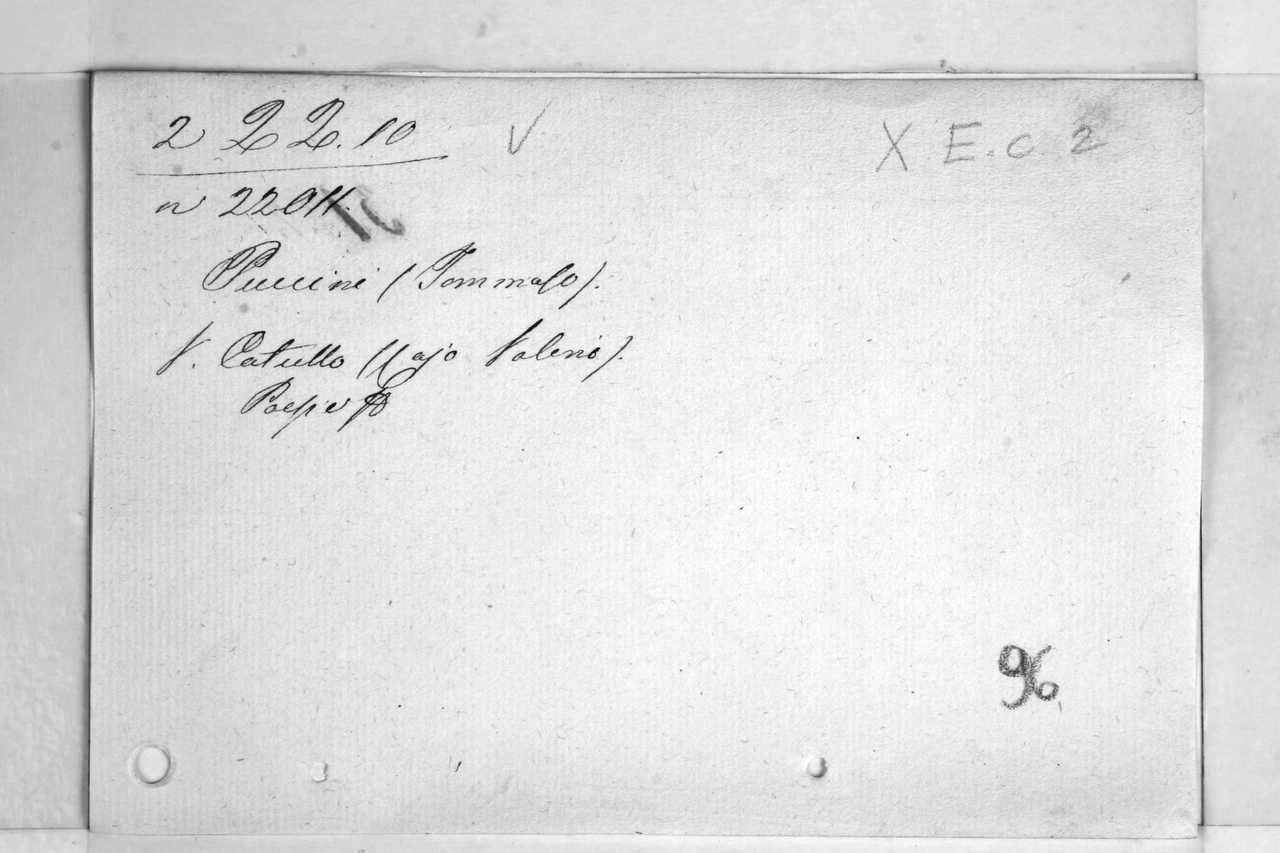 2 2 2.10 V X E.c 2
n 22011.
Puccini (Tommaso).
V. Catullo (Cajo Valerio).
Poesie
96